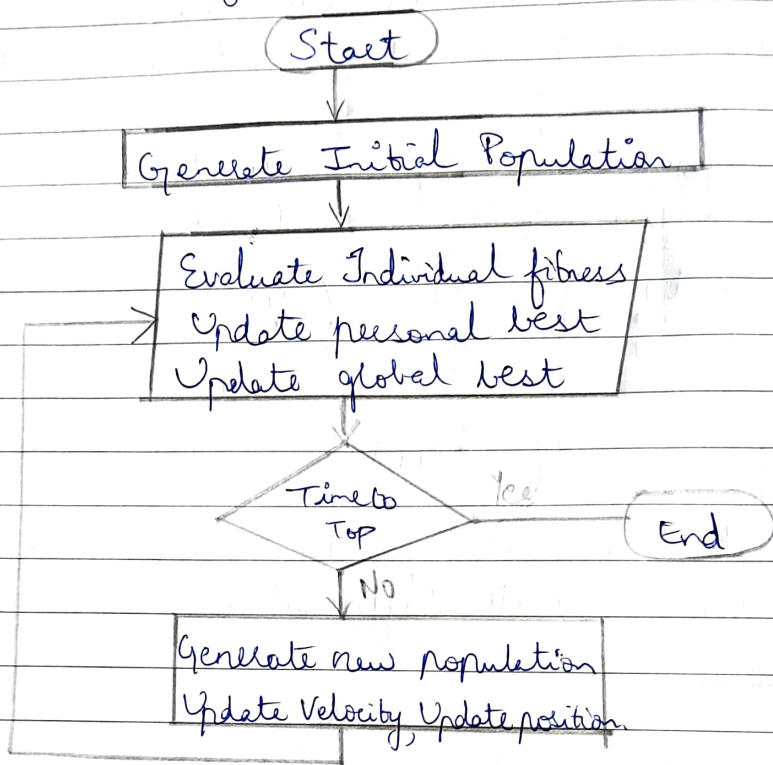 Start
Generate Initial Population
Evaluate Individual fitness
Update personal best
Update global best
Time to
Top
Yes
End
No
Generate new population
Update Velocity, Update position